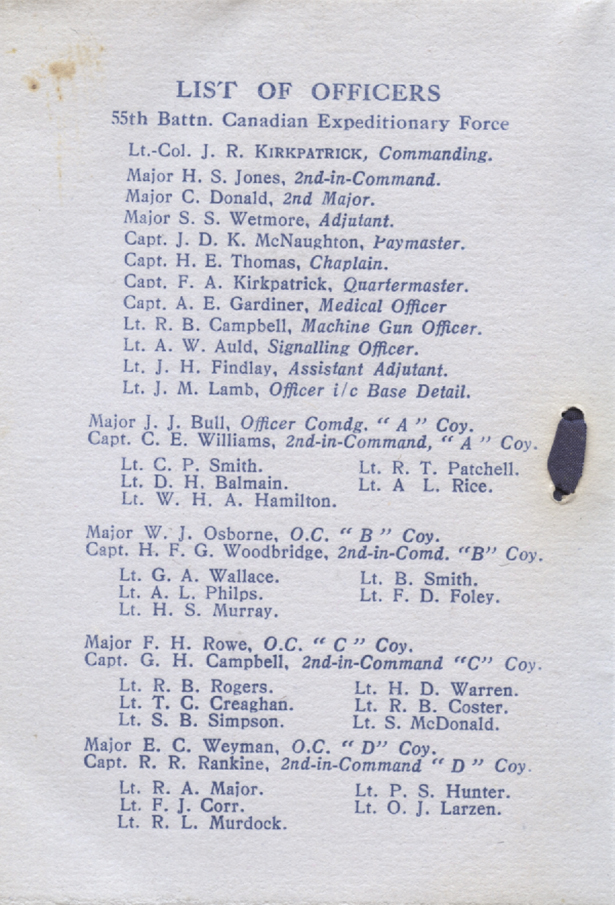 LIST OF OFFICERS
55th Battn. Canadian Expeditionary Force
Lt.-Col. J. R. KIRKPATRICK, Commanding.
Major H. S. Jones, 2nd-in-Command.
Major C. Donald, 2nd Major.
Major S. S. Wetmore, Adjutant.
Capt. J. D. K. McNaughton, Paymaster.
Capt. H. E. Thomas, Chaplain.
Capt. F. A. Kirkpatrick, Quartermaster.
Capt. A. E. Gardiner, Medical Officer
Lt. R. B. Campbell, Machine Gun Officer.
Lt. A. W. Auld, Signalling Officer.
Lt. J. H. Findlay, Assistant Adjutant.
Lt. J. M. Lamb, Officer i/c Base Detail.
Major J. J. Bull, Officer Comdg. “ A ” Coy.
Capt. C. E. Williams, 2nd-in-Command, “ A ” Coy.
Lt. C. P. Smith. Lt. R. T. Patchell.
Lt. D. H. Balmain. Lt. A L. Rice.
Lt. W. H. A. Hamilton.
Major W. J. Osborne, O.C. “ B ” Coy.
Capt. H. F. G. Woodbridge, 2nd-in-Comd. “B” Coy.
Lt. G. A. Wallace. Lt. B. Smith.
Lt. A. L. Philps. Lt. F. D. Foley.
Lt. H. S. Murray.
Major F. H. Rowe, O.C. “ C ” Coy.
Capt. G. H. Campbell, 2nd-in-Command “C” Coy.
Lt. R. B. Rogers. Lt. H. D. Warren.
Lt. T. C. Creaghan. Lt. R. B. Coster.
Lt. S. B. Simpson. Lt. S. McDonald.
Major E. C. Weyman, O.C. “ D” Coy.
Capt. R. R. Rankine, 2nd-in-Command “ D ” Coy.
Lt. R. A. Major. Lt. P. S. Hunter.
Lt. F. J. Corr. Lt. O. J. Larzen.
Lt. R. L. Murdock.